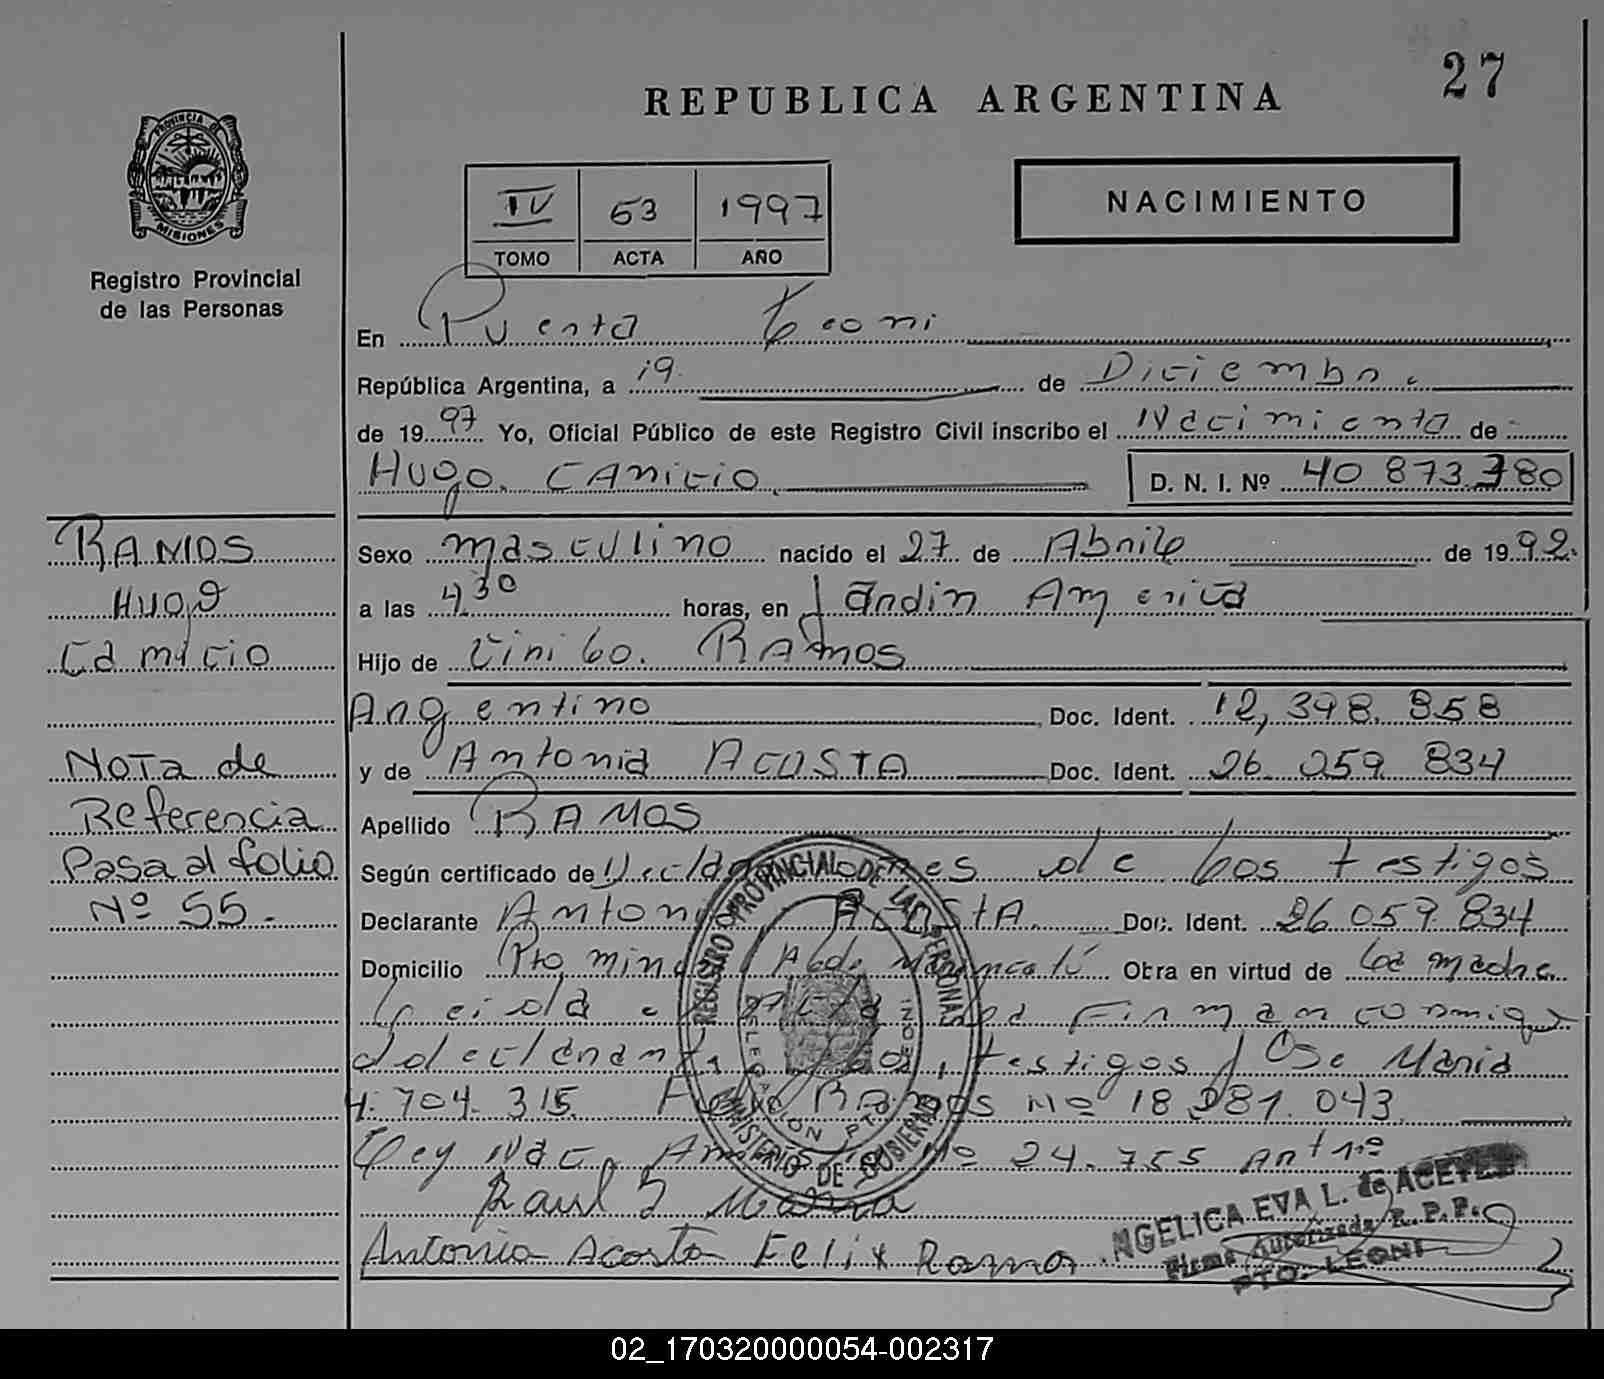 27
REPUBLICA ARGENTINA
PROVINCIA DE
MISIONES
Registro Provincial
de las Personas
IV 53 1997
TOMO ACTA AÑO
NACIMIENTO
En Puerto Leoni
República Argentina, a 19 de Diciembre
de 1997 Yo, Oficial Público de este Registro Civil inscribo el Nacimiento de
Hugo CAMICIO D. N. I. Nº 40 873.780
Sexo masculino nacido el 27 de Abril de 1992.
a las 4,30 horas, en Jardin America
Hijo de Ramos
Argentino Doc. Ident. 12,398.858
y de Antonia ACOSTA Doc. Ident. 26.059 834
Apellido RAMOS
Según certificado de de los testigos
Declarante Antonia ACOSTA Doc. Ident. 26.059.834
Domicilio Pto mineral Otra en virtud de la madre
Leida el Acta la Firman conmigo
testigos Jose Maria
4.704.315 Felix Ramos Nº 18.281.043
Ley Nac. Amnistia Nº 24.755 Art 1º
Raul
Antonia Acosta Felix Ramos
RAMOS
Hugo
Camicio
NOTA de
Referencia
Pasa al folio
Nº 55.
REGISTRO PROVINCIAL DE LAS PERSONAS
DELEGACION PTO. LEONI
MINISTERIO DE GOBIERNO
ANGELICA EVA L. de
Firma Autorizada R.P.P.
PTO. LEONI
02_170320000054-002317